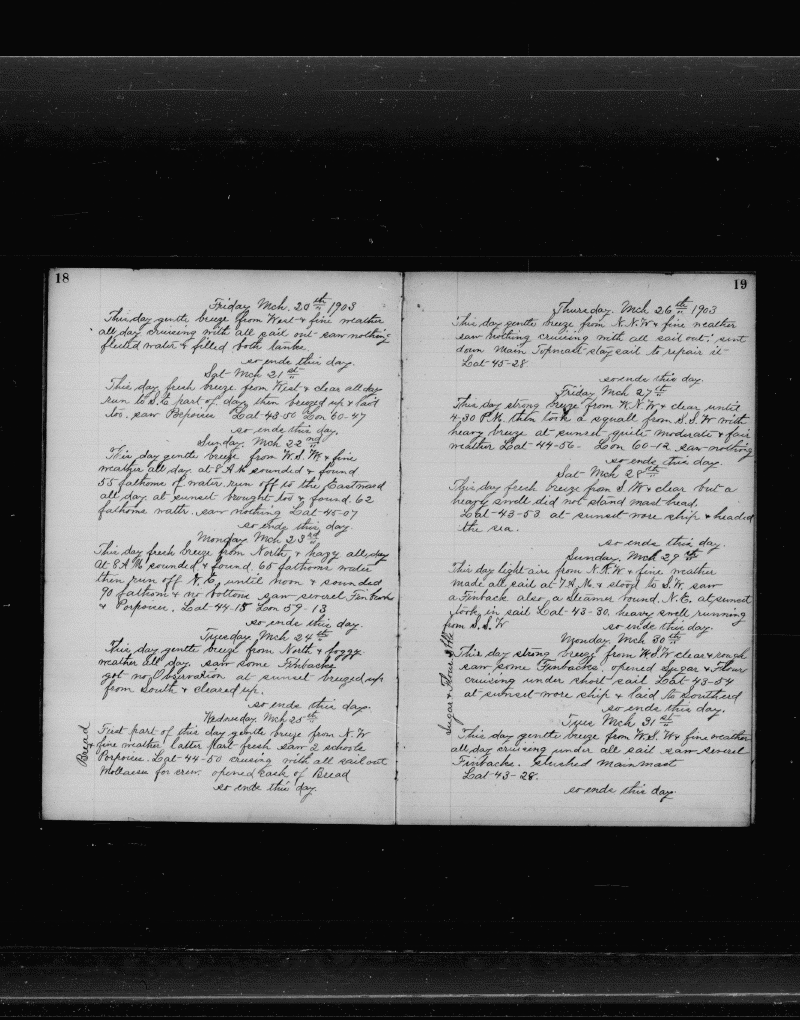 18
Friday Mch. 20th 1903
This day gentle breeze from West & fine weather
all day cruising with all sail out saw nothing
fleeted water & filled both tanks
so ends this day.
Sat Mch 21st
This day fresh breeze from West & clear all day
run to S.E. part of day then breezed up & laid
too. saw Porpoises Lat 43-50 Lon 60-47
so ends this day.
Sunday. Mch 22nd
This day gentle breeze from W.S.W. & fine
weather all day. at 8 A.M sounded & found
55 fathoms of water run off to the Eastward
all day. at sunset brought too & found 62
fathoms water. saw nothing Lat 45-07
so ends this day.
Monday Mch 23rd
This day fresh breeze from North, & hazy all day
At 8 A.M sounded & found 65 fathoms water
then run off N.E. until noon & sounded
90 fathom & no bottom saw several Finbacks
& Porpoises. Lat 44-18 Lon 59-13
so ends this day.
Tuesday Mch 24th
This day gentle breeze from North & foggy
weather all day. saw some Finbacks
got no Observation at sunset breezed up
from South & cleared up.
so ends this day.
Wednesday. Mch 25th
Bread
First part of this day gentle breeze from N.W
& fine weather latter part fresh saw 2 schools
Porpoises. Lat 44-50 cruising with all sail out
Mollasses for crew. opened cask of Bread
so ends this day.
19
Thursday. Mch 26th 1903
This day gentle breeze from N.N.W & fine weather
saw nothing cruising with all sail out. sent
down Main Topmast staysail to repair it
Lat 45-28
so ends this day.
Friday Mch 27th
This day strong breeze from W.N.W. & clear until
4,30 P.M. then took a squall from S.S.W with
heavy breeze at sunset quite moderate & fair
weather Lat 44-56- Lon 60-12 saw nothing
so ends this day.
Sat Mch 28th
This day fresh breeze from S.W. & clear but a
heavy swell did not stand mast head,
Lat 43-53 at sunset wore ship & headed
the sea.
so ends this day.
Sunday, Mch 29th
This day light airs from N.N.W & fine weather
made all sail at 7 A.M. & stood to S.W. saw
a Finback also a Steamer bound N.E. at sunset
took in sail Lat 43-30. heavy swell running
from S.S.W so ends this day.
Monday Mch 30th
Sugar & Flour
This day strong breeze from W.S.W clear & rough
saw some Finbacks opened Sugar & Flour
cruising under short sail Lat 43-54
at sunset wore ship & laid to Southerd
so ends this day.
Tues Mch 31st
This day gentle breeze from W.S.W & fine weather
all day cruising under all sail saw several
Finbacks. slushed mainmast
Lat 43-28.
so ends this day.